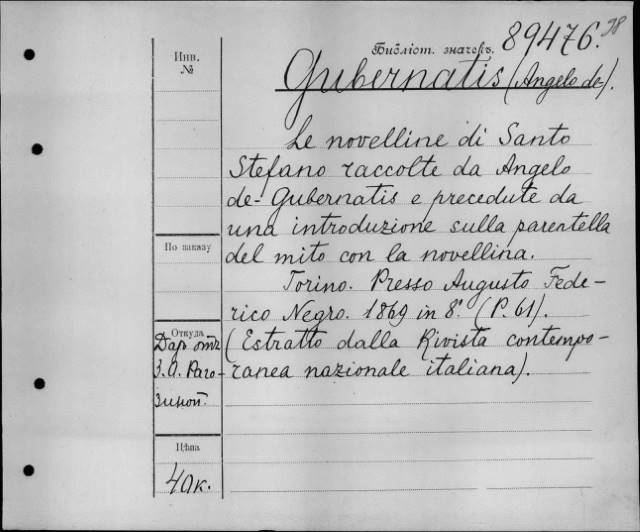 Библіот. значекъ. 89476.
Инв.
№
Gubernatis (Angelo de-).
Le novelline di Santo
Stefano raccolte da Angelo
de-Gubernatis e precedute da
una introduzione sulla parentella
По заказу
del mito con la novellina.
Torino. Presso Augusto Fede-
rico Negro. 1869 in 8°. (P. 61).
Откуда
Даръ отъ
(Estratto dalla Rivista contempo-
З. А. Раго-
ranea nazionale italiana).
зиной.
Цѣна
40к.